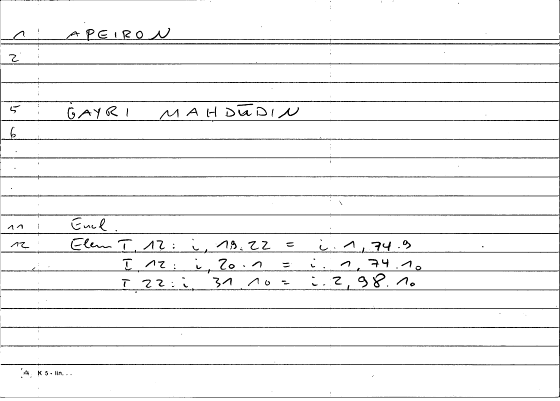 1 APEIRON
2
5 ĠAYRI MAHDŪDIN
6
11 Eucl.
12 Elem I, 12: i, 19.22 = i. 1, 74.9
I, 12: i, 20.1 = i. 1, 74.10
I, 22: i, 31.10 = i. 2, 98.10
K 5 - lin...